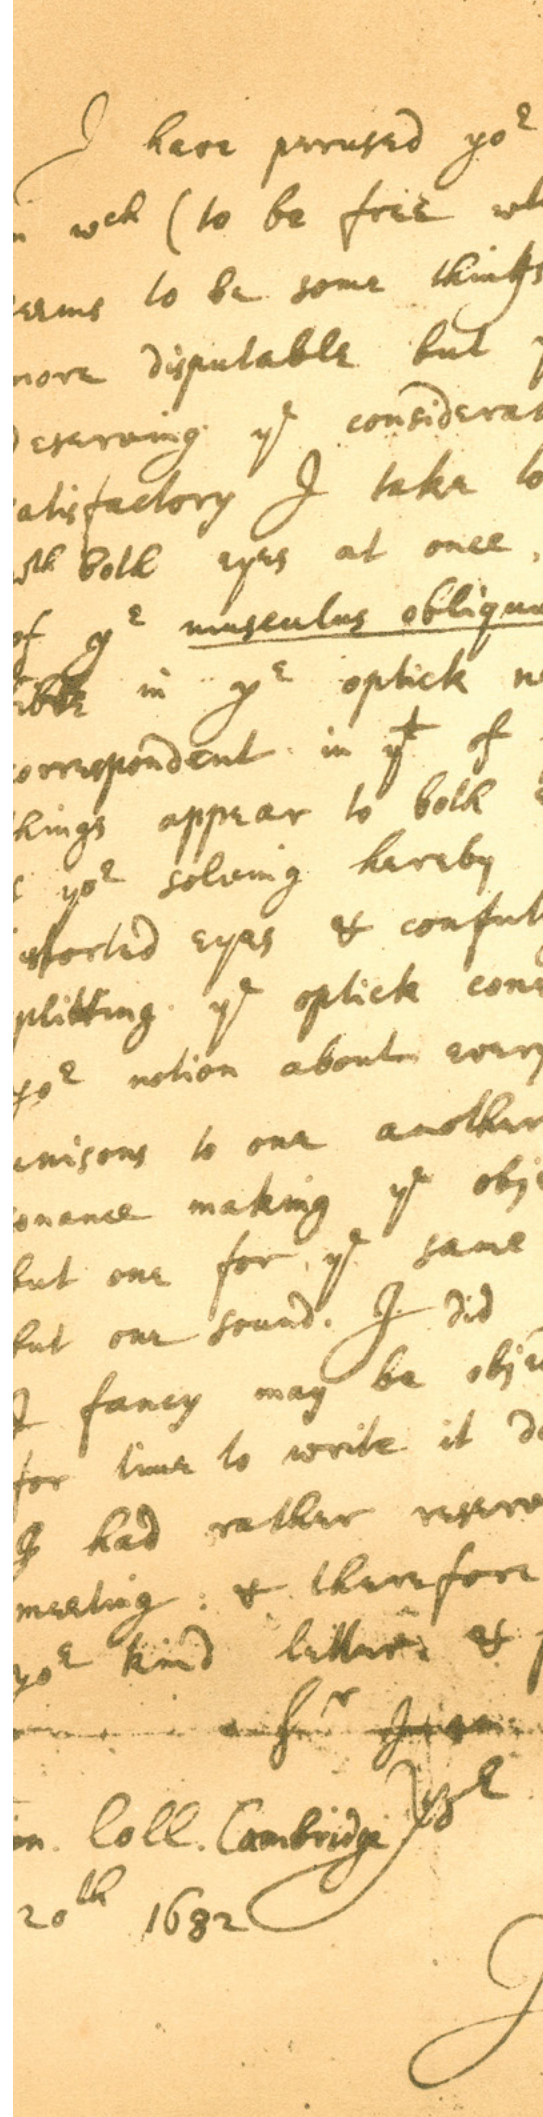 I have perused yoʳ
n wᶜʰ (to be free w
eems to be some things
more disputable but
deserving yᵉ considerat
atisfactory I take to
wᵗʰ both eyes at once,
of yᵉ musculus obliqu
ible in yᵉ optick n
orrespondent in yᵗ of
hings appear to both
yoʳ solving hereby
istorted eyes & confut
plitting yᵉ optick con
yoʳ notion about every
unisons to one another
onance making yᵉ obj
but one for yᵉ same
but one sound. I did
I fancy may be obje
for time to write it d
I had rather reserv
meeting: & therefore
yoʳ kind letter &
Sʳ I am
yoʳ
in. Coll. Cambridge
20ᵗʰ 1682